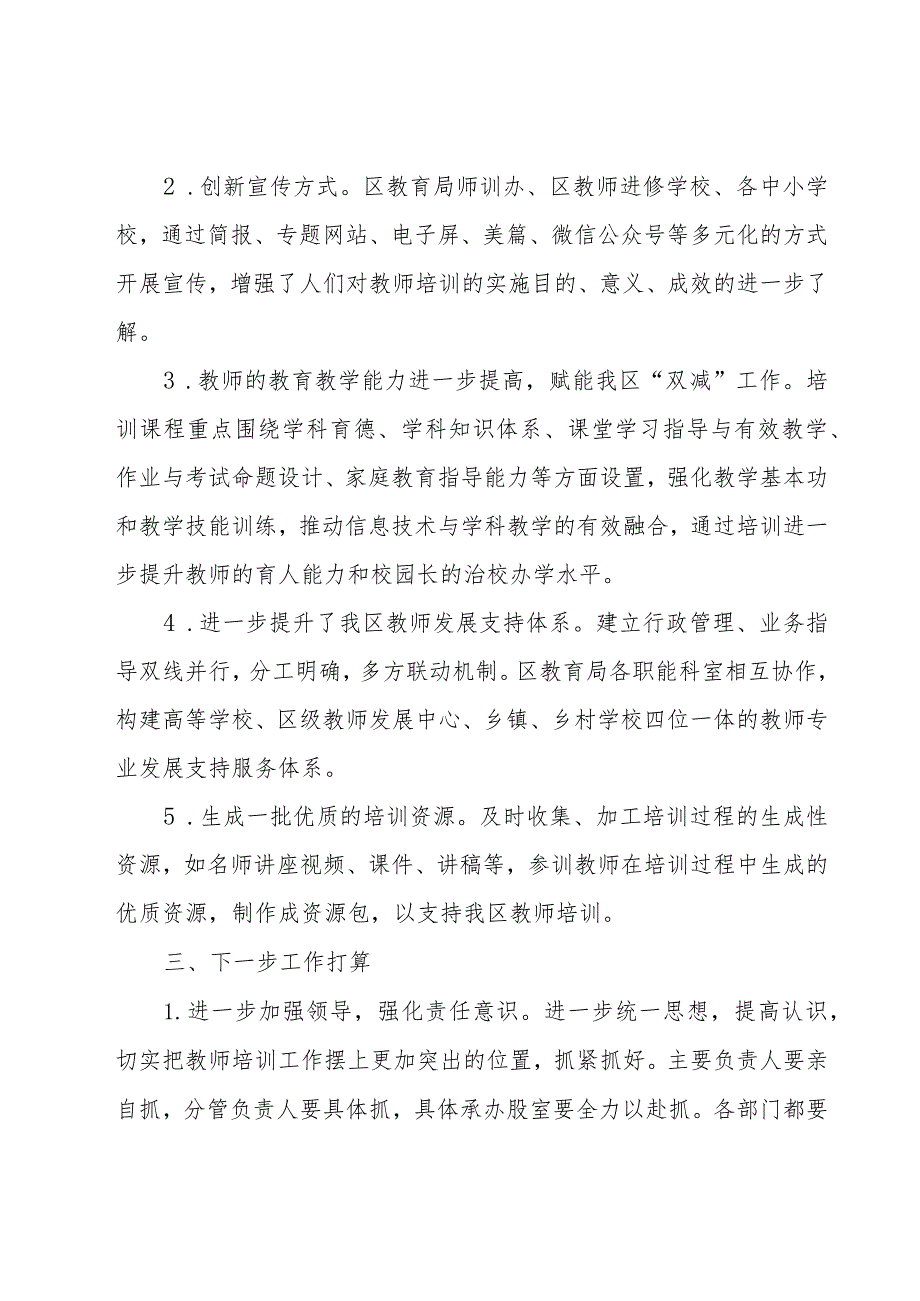 2 .创新宣传方式。区教育局师训办、区教师进修学校、各中小学
校，通过简报、专题网站、电子屏、美篇、微信公众号等多元化的方式
开展宣传，增强了人们对教师培训的实施目的、意义、成效的进一步了
解。
3 .教师的教育教学能力进一步提高，赋能我区“双减”工作。培
训课程重点围绕学科育德、学科知识体系、课堂学习指导与有效教学、
作业与考试命题设计、家庭教育指导能力等方面设置，强化教学基本功
和教学技能训练，推动信息技术与学科教学的有效融合，通过培训进一
步提升教师的育人能力和校园长的治校办学水平。
4 .进一步提升了我区教师发展支持体系。建立行政管理、业务指
导双线并行，分工明确，多方联动机制。区教育局各职能科室相互协作，
构建高等学校、区级教师发展中心、乡镇、乡村学校四位一体的教师专
业发展支持服务体系。
5 .生成一批优质的培训资源。及时收集、加工培训过程的生成性
资源，如名师讲座视频、课件、讲稿等，参训教师在培训过程中生成的
优质资源，制作成资源包，以支持我区教师培训。
三、下一步工作打算
1.进一步加强领导，强化责任意识。进一步统一思想，提高认识，
切实把教师培训工作摆上更加突出的位置，抓紧抓好。主要负责人要亲
自抓，分管负责人要具体抓，具体承办股室要全力以赴抓。各部门都要